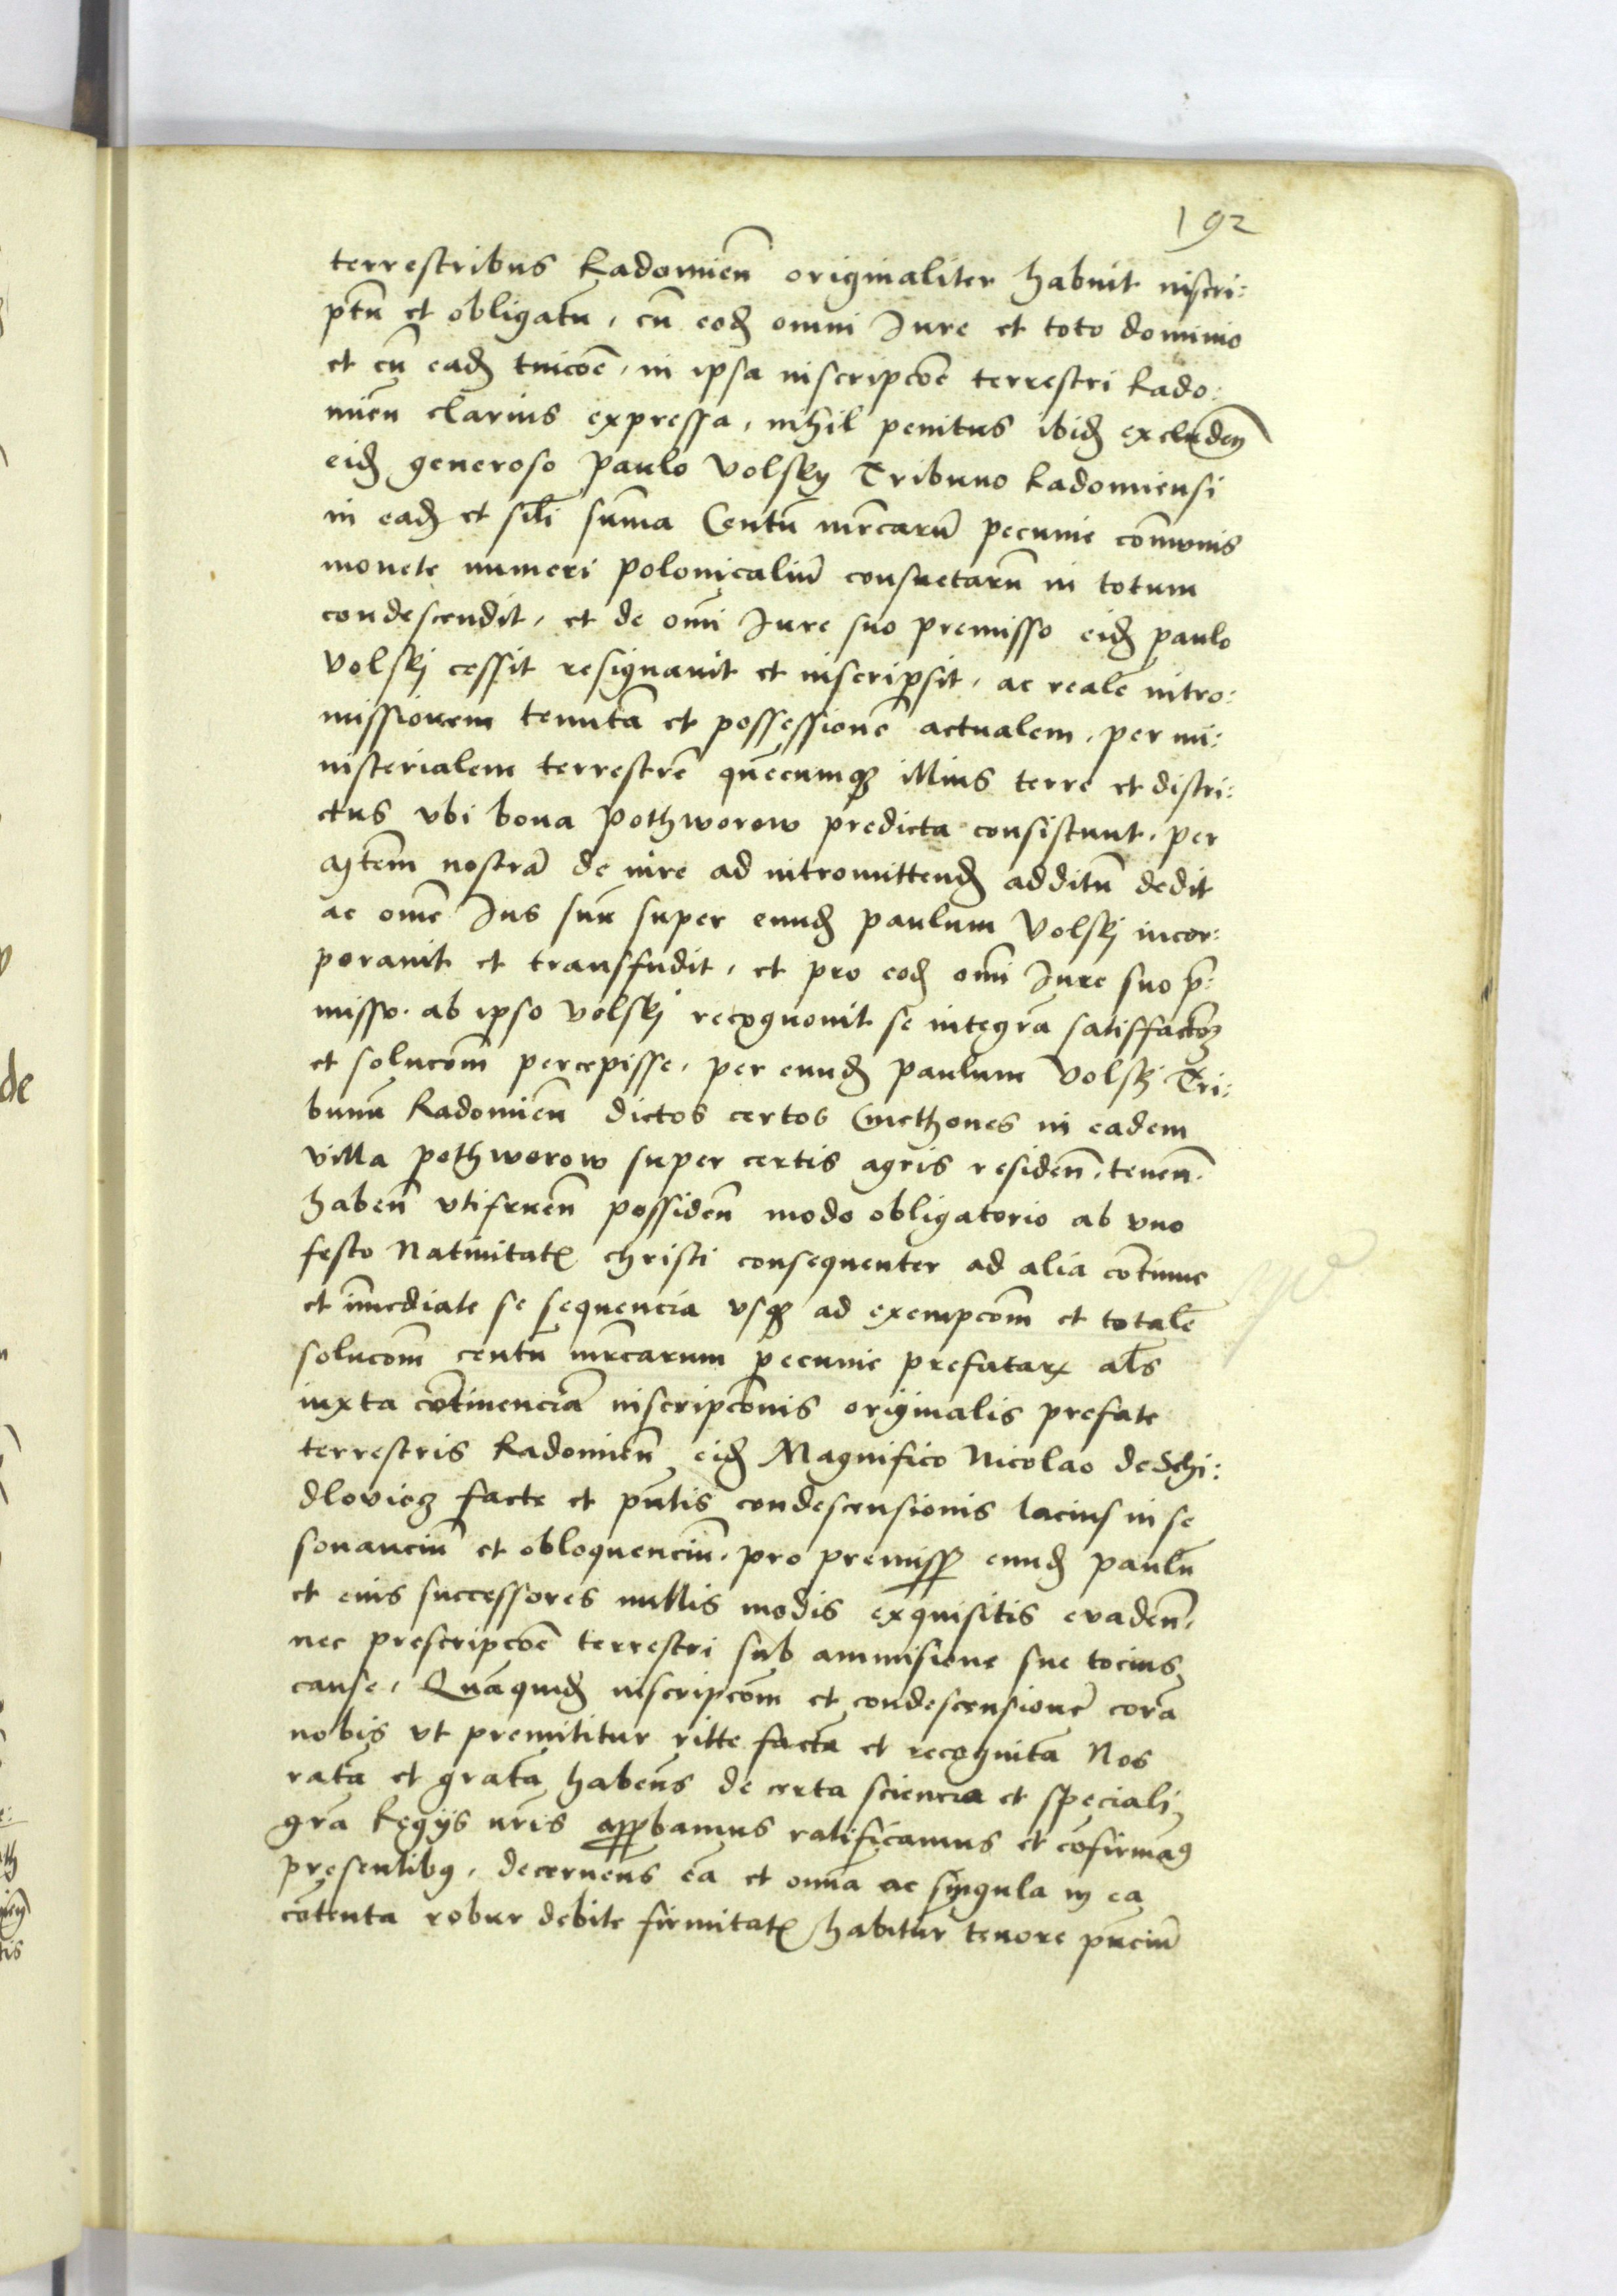 192
terrestribus Radomien̄ originaliter habuit inscri:
ptū et obligatū, cū eod̄ omni Iure et toto dominio
et cū ead̄ tuicōe, in ipsa inscripcōe terrestri Rado:
mien̄ clarius expressa, nihil penitus ibid̄ excluden̄
eid̄ generoso Paulo Volsky Tribuno Radomiensi
in ead̄ et sīli sūma Centū mr̄carū pecunie cōmunis
monete numeri polonicaliū consuetarū in totum
condescendit, et de om̄i Iure suo premisso eid̄ paulo
Volskj cessit resignauit et inscripsit, ac realē intro:
missionem tenutā et possessionē actualem, per mi:
nisterialem terrestrē quēcumq̄ illius terre et distri:
ctus vbi bona Pothworow predicta consistunt, per
ag̃tem nostrā de iure ad intromittend̄ additū dedit
ac om̄e Ius suū super eund̄ paulum Volskj incor:
porauit et transfudit, et pro eod̄ om̄i Iure suo p̄:
misso. ab ipso Volskj recognouit se integrā satisfactōz
et solucōm percepisse, per eund̄ paulum Volskj Tri:
bunū Radomien̄ dictos certos Cmethones in eadem
villa pothworow super certis agris residen̄. tenen̄.
haben̄ vtifruen̄ possiden̄ modo obligatorio ab vno
festo Natiuitatꝭ christi consequenter ad alia cōtinue
et īmediate se sequencia vsq̄ ad exempcōm et totalē
solucōm centū mr̄carum pecunie prefatarꝝ al̄s
iuxta cōtinenciā inscripcōnis originalis prefate
terrestris Radomien̄ eid̄ Magnifico Nicolao de Schi:
dloviecz facte et pn̄tis condescensionis lacius in se
sonanciū et obloquenciū. pro premissꝭ eund̄ paulū
et eius successores nullis modis exquisitis evaden̄.
nec prescripcōe terrestri sub ammisione sue tocius
cause, Quāquid̄ inscripcōm et condescensionē corā
nobis vt premititur ritte factā et recognitā Nos
ratā et gratā habens̄ de certa sciencia et speciali
gr̄a Regijs nr̄is app̄bamus ratificamus et cōfirmam9
presentibꝯ, decernens̄ eā et om̄ia ac singula in ea
cōtenta robur debite firmitatꝭ habitur tenore pn̄ciū